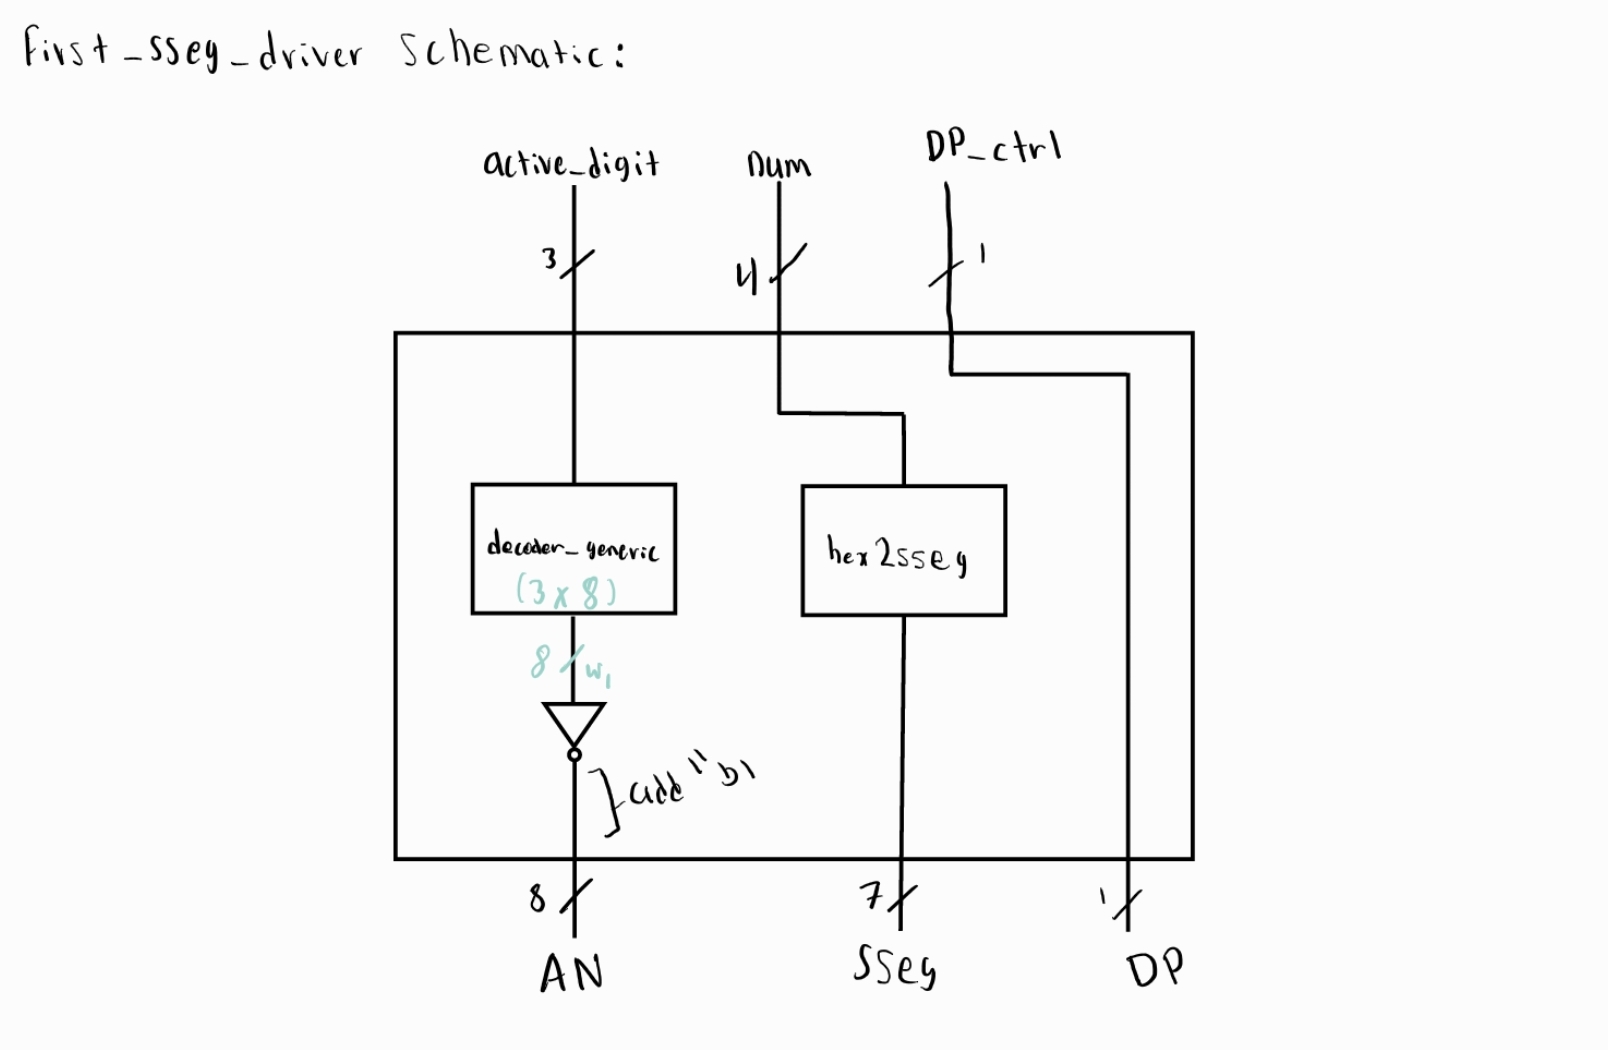 First_sseg_driver Schematic:
active_digit
num
DP_ctrl
3
4
1
decoder_generic
(3 x 8)
hex2sseg
8
w₁
}add "b1
8
7
1
AN
SSeg
DP